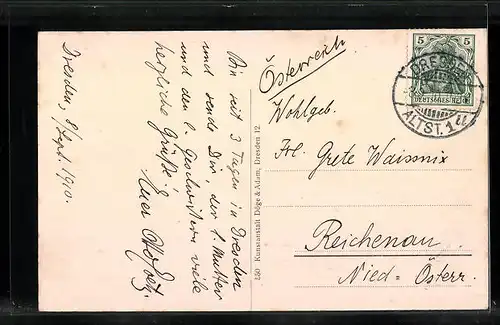 Dresden, 8/Sept. 1910.
Bin seit 3 Tagen in Dresden
und sende Dir, der l. Mutter
und den l. Geschwistern viele
herzliche Grüße!
Euer
150 Kunstanstalt Döge & Adam, Dresden 12.
Österreich.
Wohlgeb.
Frl. Grete Waissnix
Reichenau
Nied-Österr.
5 5
DEUTSCHES REICH
DRESDEN
ALTST. 1